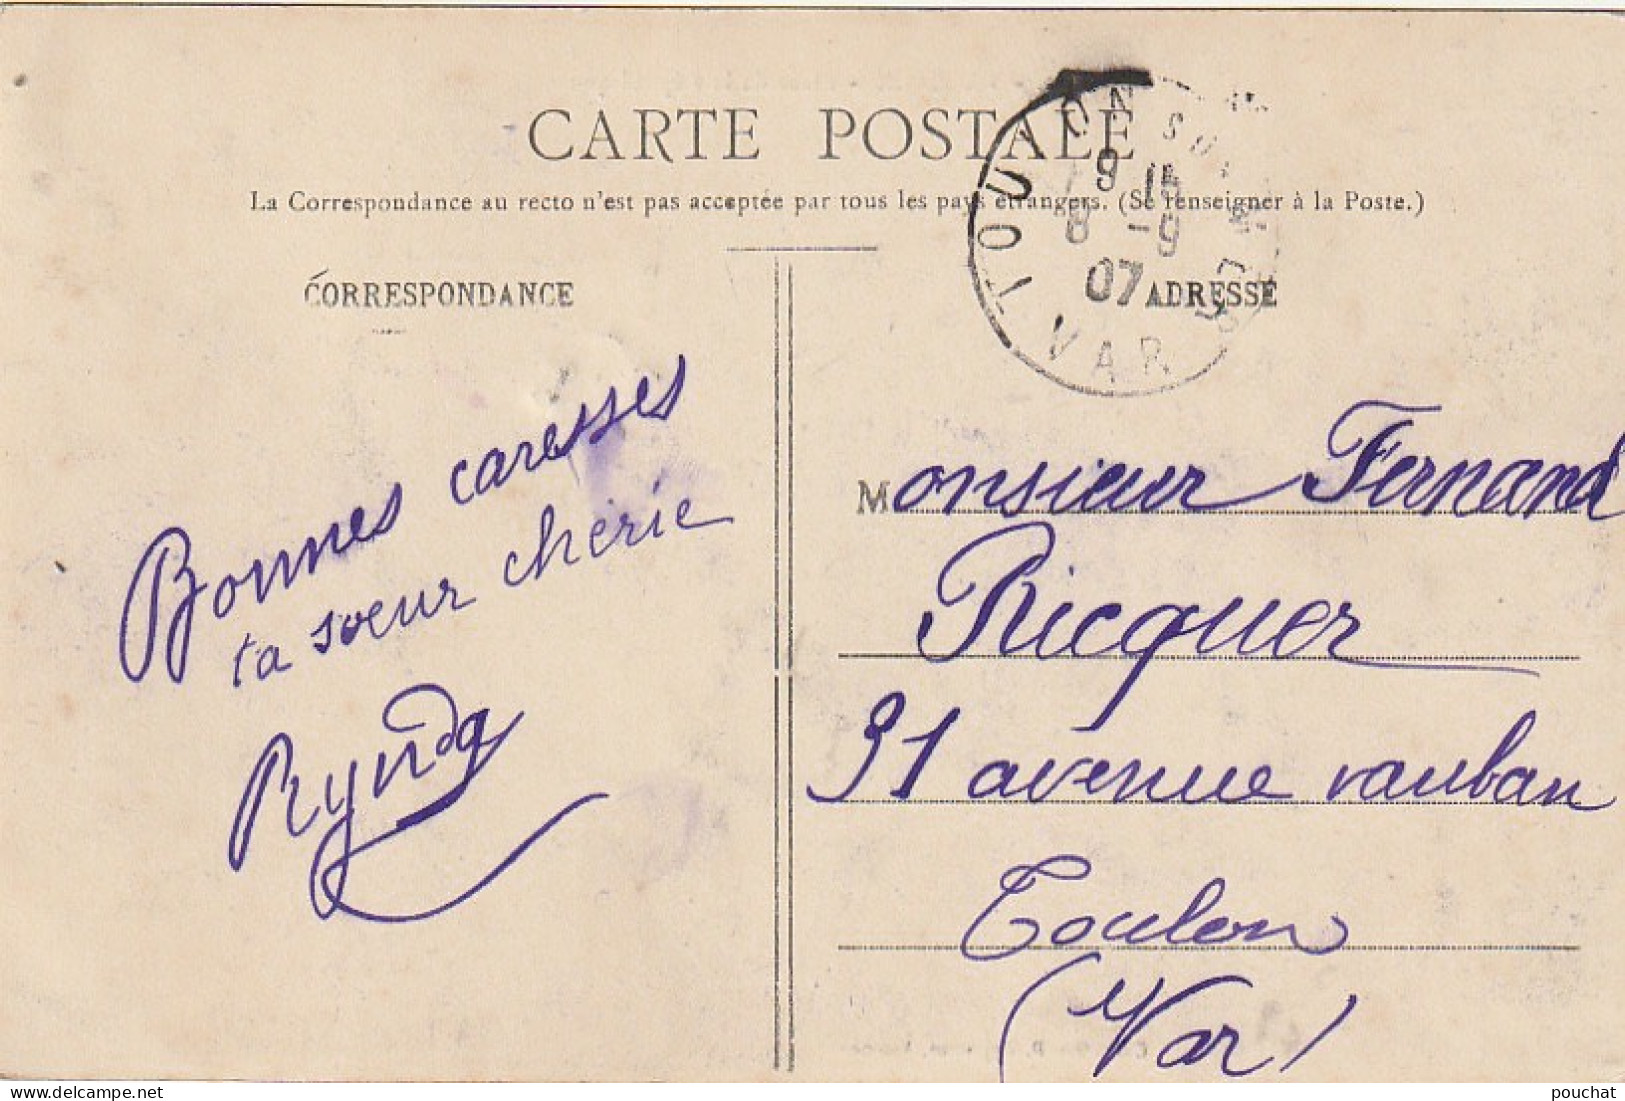 CARTE POSTALE
La Correspondance au recto n'est pas acceptée par tous les pays étrangers. (Se renseigner à la Poste.)
CORRESPONDANCE
ADRESSE
TOULON SUR MER
9 15
8 -9
07
VAR
Bonnes caresses
ta sœur chérie
Rynda
Monsieur Fernand
Ricquer
31 avenue vauban
Toulon
(Var)
pouchat